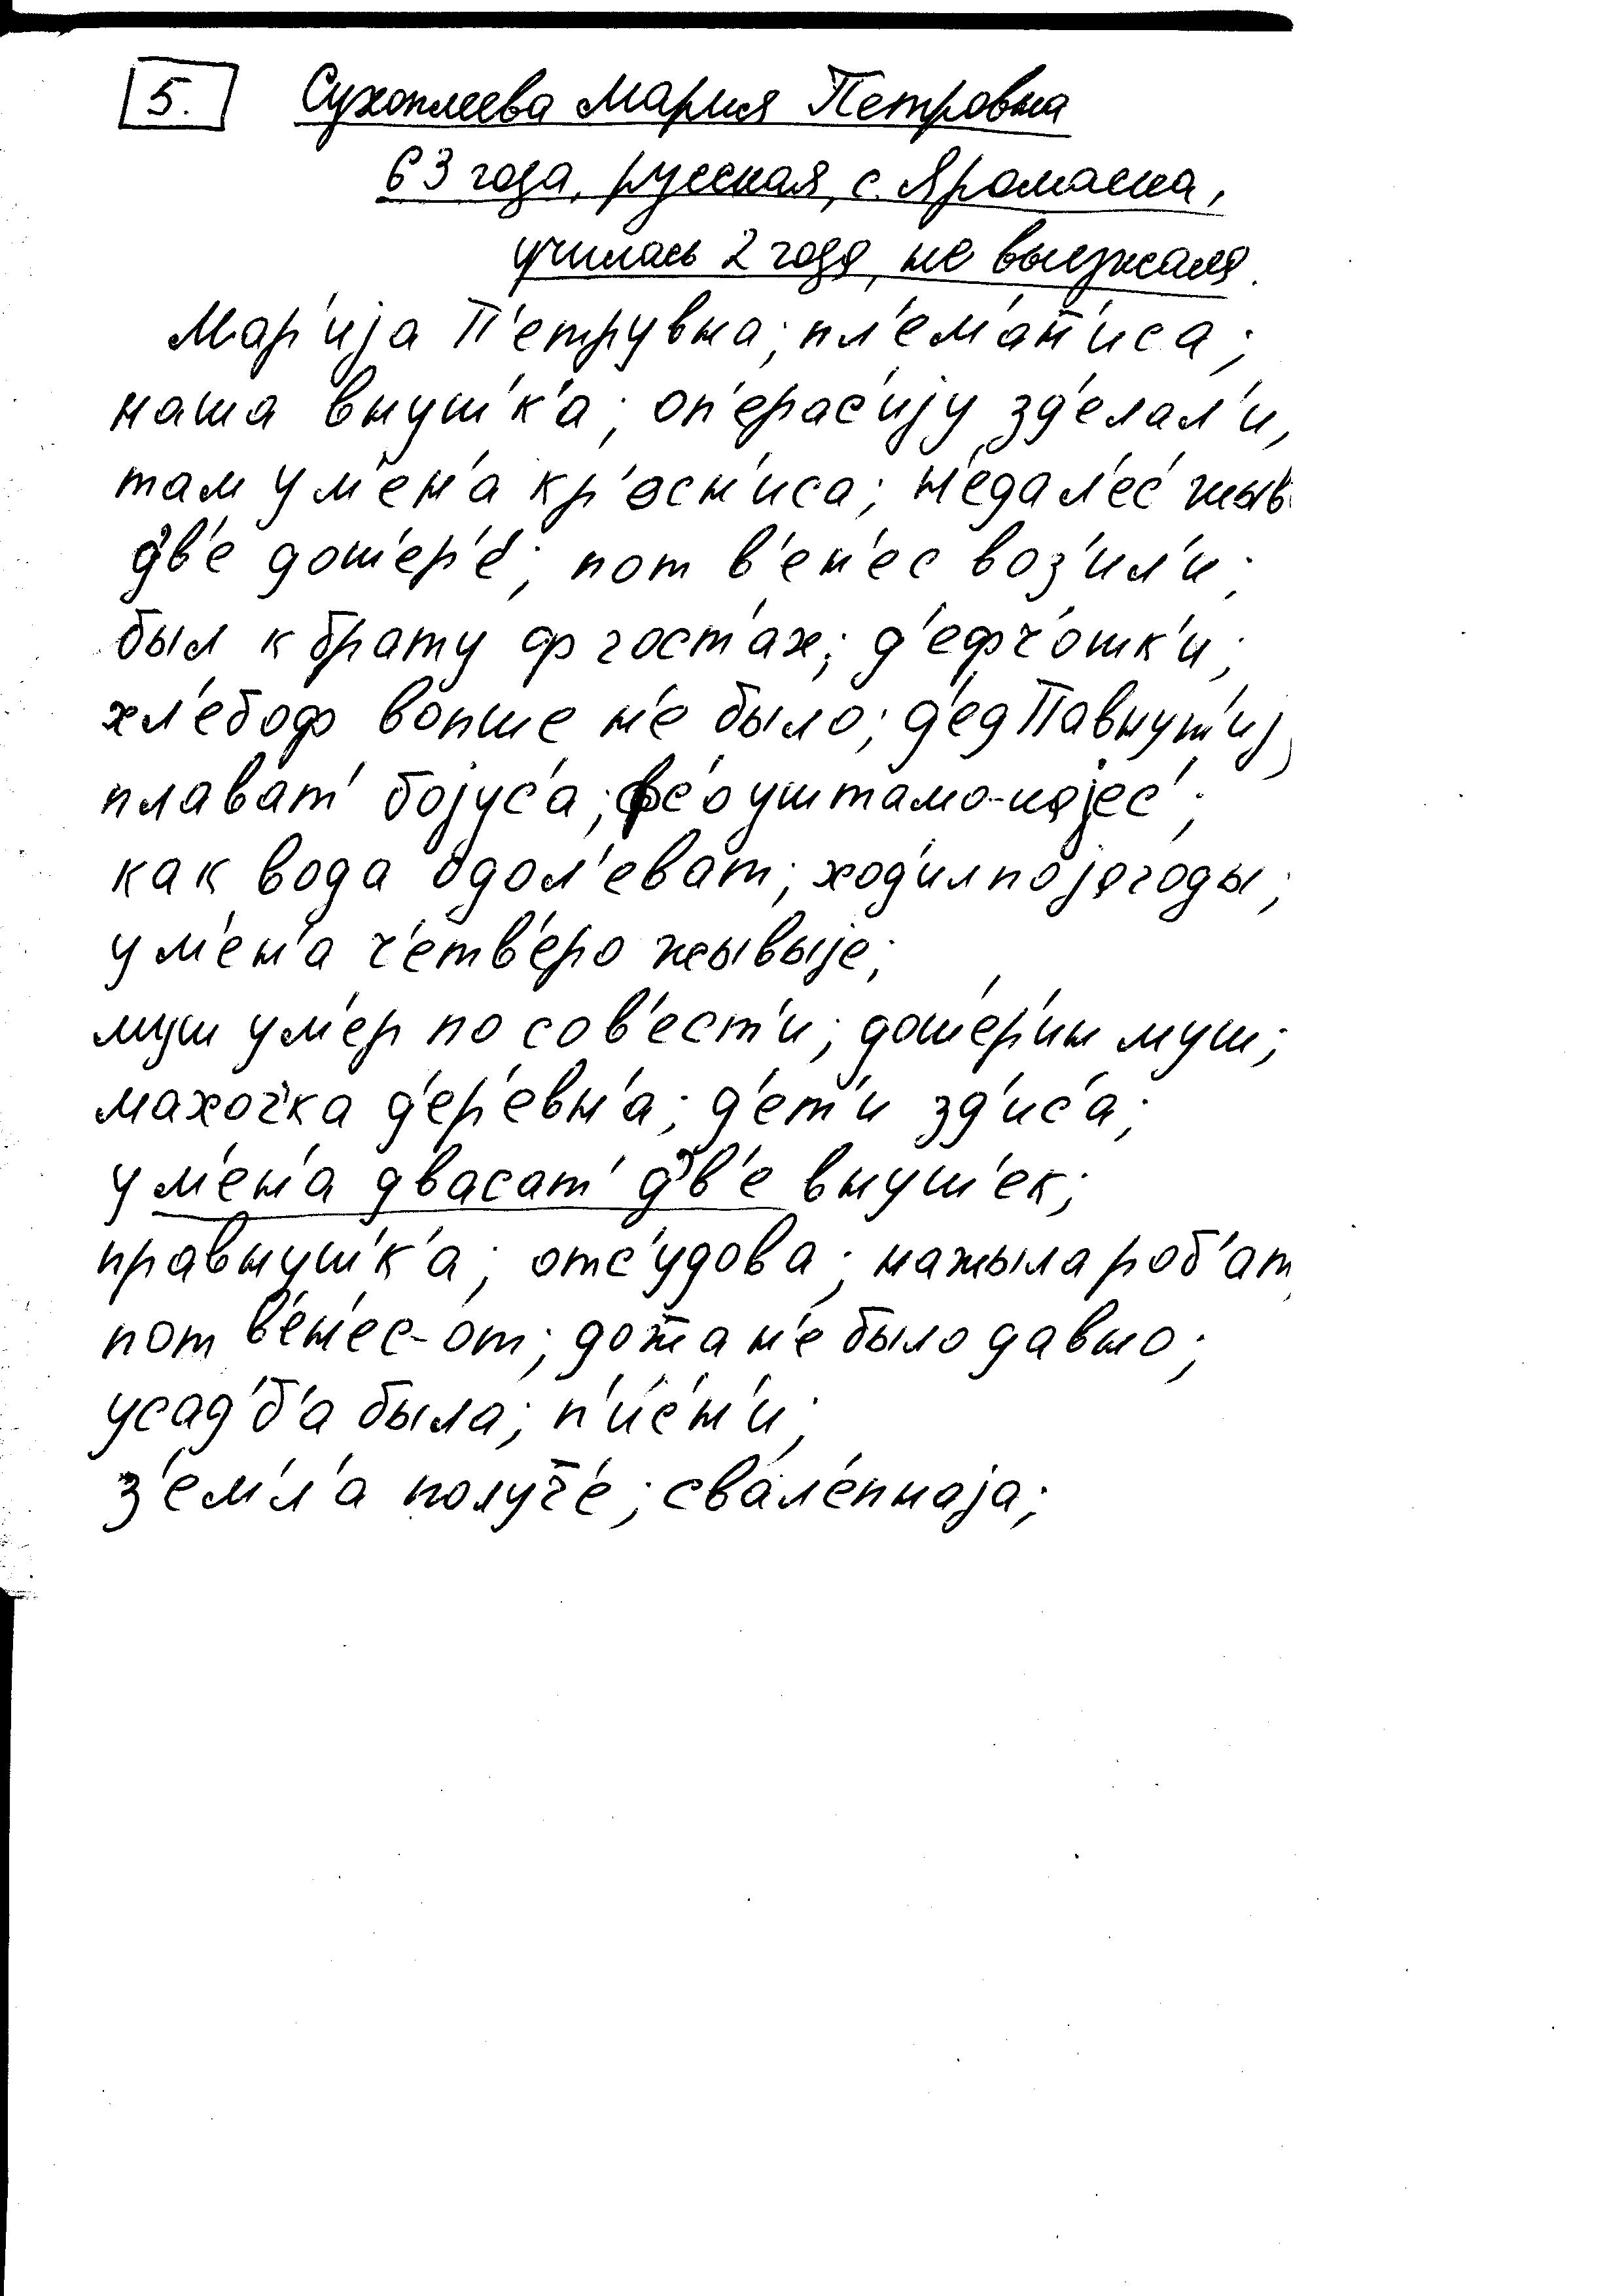 5. Сухоплеева Мария Петровна
63 года, русская, с. Яромаска,
училась 2 года, не выезжала.
Мар'иjа П'етрувна; пл'ем'ан'иса;
наша внуш'к'а; оп'ерас'иjу зд'елал'и,
там у м'ен'а кр'осн'иса; н'едал'ес' жыв
дв'е дош'ер'е; пот в'ен'ес воз'ил'и;
был к брату ф гост'ах; д'ефч'ошк'и;
хл'ебоф вопше н'е было; д'ед Павнут'иj
плават' бојус'а; фс'о уш тамо-ка jес';
как вода одол'еват; ход'ил по jагоды;
у м'ен'а ч'етв'еро жывыjе;
муш ум'ер по сов'ест'и; дош'ер'ин муш;
махоч'ка д'ер'евн'а; д'ет'и зд'ис'а;
у м'ен'а двасат' дв'е внуш'ек;
правнуш'к'а; отс'удова; нажыла роб'ат
пот в'ен'ес-от; дожа н'е было давно;
усад'б'а была; п'ис'н'и;
з'ем'л'а получ'е; свал'епнаjа;